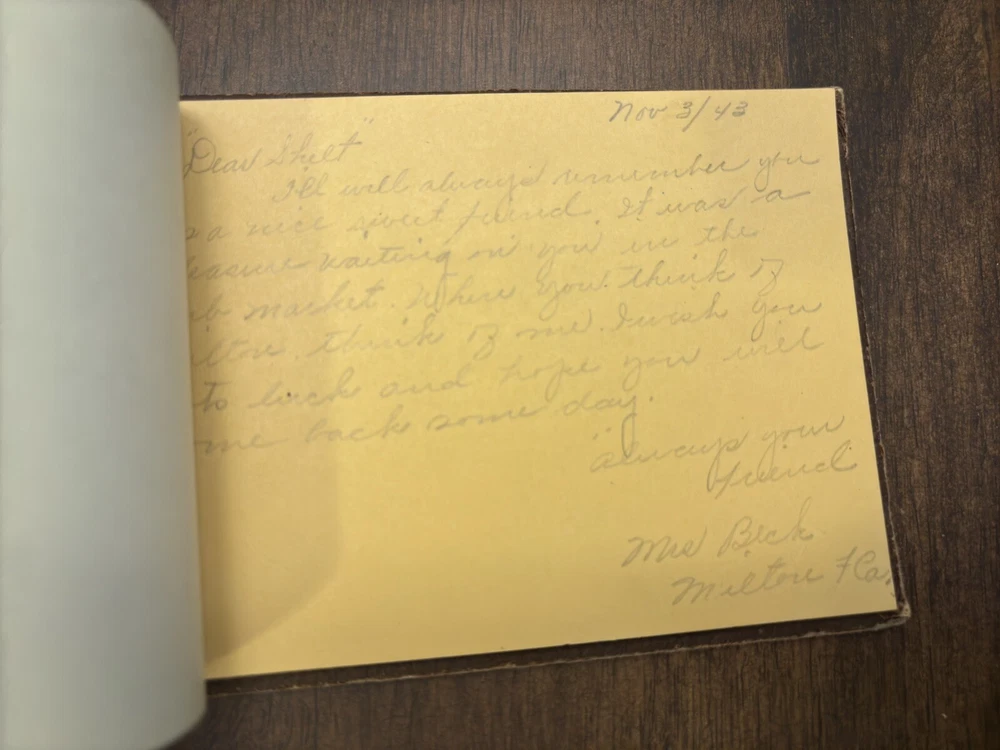 Nov 3/43
"Dear Shelt"
I'll will always remember you
a nice sweet friend. It was a
waiting on you in the
market. When you think of
think of me. I wish you
luck and hope you will
back some day.
"always your
friend
Mrs Beck
Milton Fla.